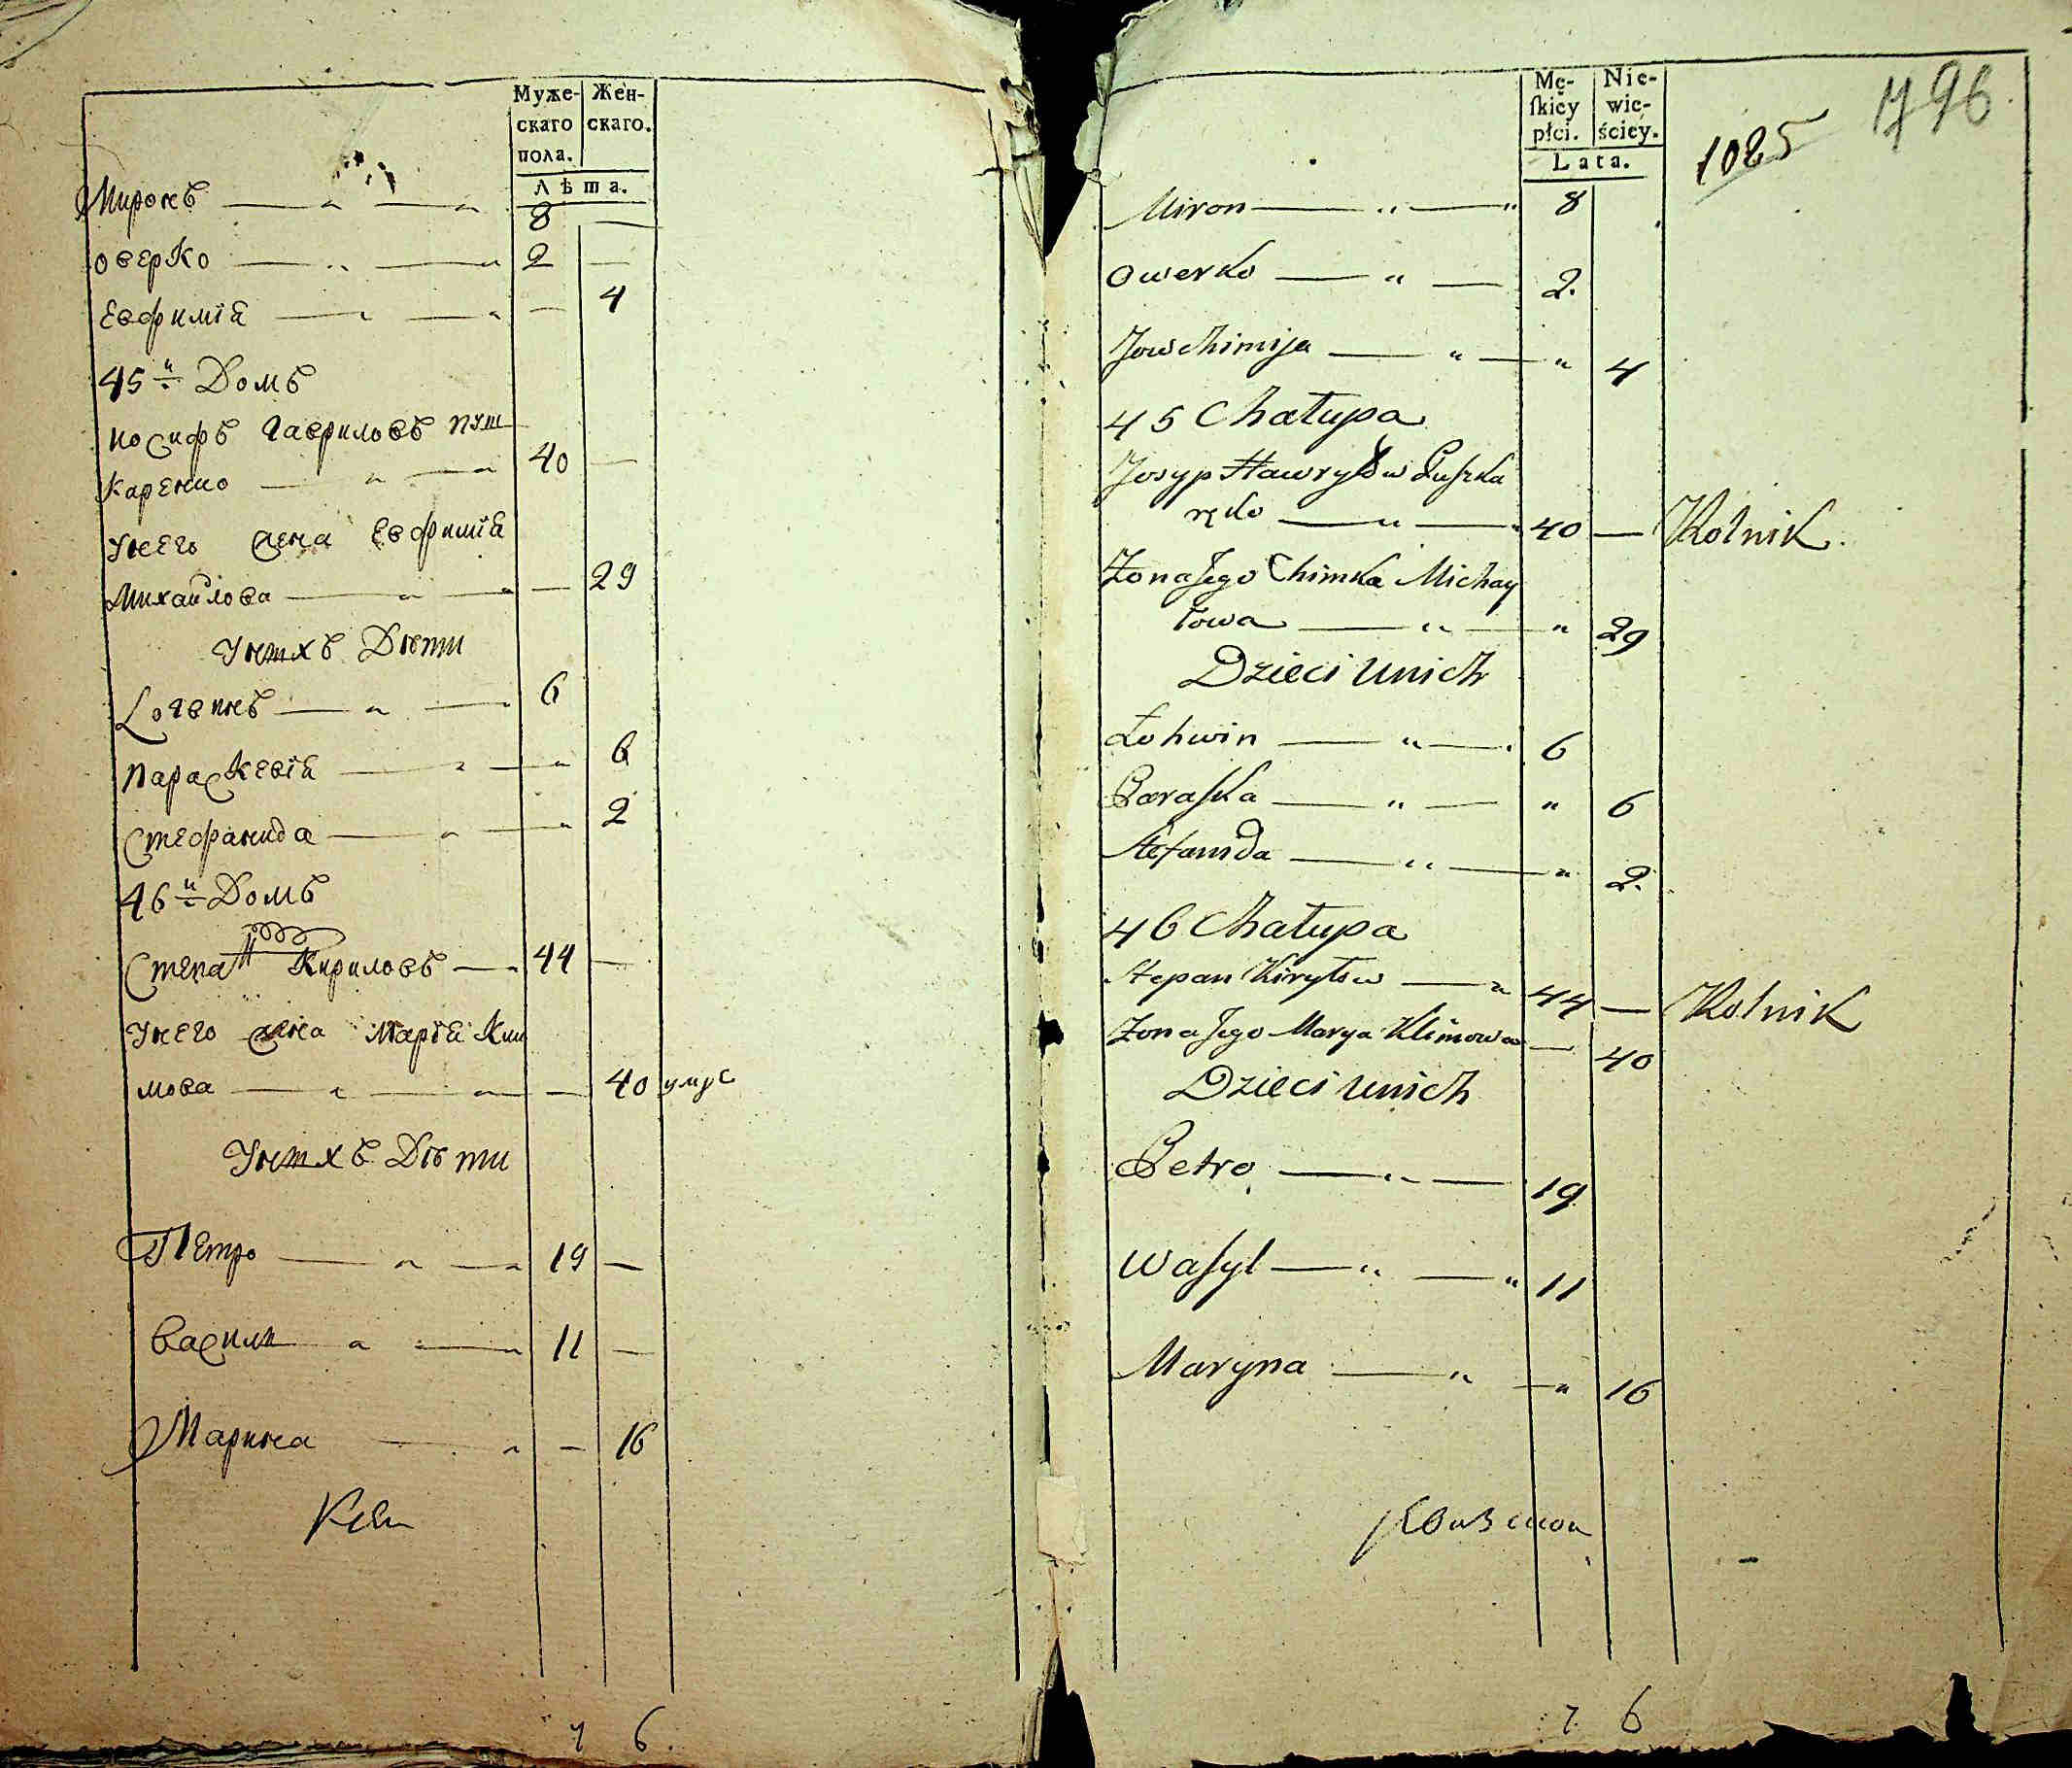 Муже- Жен-
скаго скаго.
пола.
Лѣта.
Миронъ 8 —
Оверко 2 —
Евфимія — 4
45й Домъ
Иосифъ Гавриловъ Пуш
каренко 40 —
У него жена Евфимія
Михайлова — 29
У нихъ Дѣти
Логвинъ 6
Параскевія 6
Стефанида 2
46й Домъ
Степан Кириловъ 44 —
У него жена Марія Кли
мова — 40
У нихъ Дѣти
Петро 19 —
Васили 11 —
Марина — 16
7 6.
Mę- Nie-
ſkiéy wie-
płci. ściéy.
Lata.
1025 796
Miron 8
Owerko 2.
Jowchimija 4
45 Chałupa
Josyp Hawryłów Puſzka
ręko 40 — Rolnik.
Żona Jego Chimka Michay
łowa 29
Dzieci unich
Łohwin 6
Paraſka 6
Stefanida 2.
46 Chałupa
Stepan Kiryłow 44 — Rolnik
Żona Jego Marya Klimowa — 40
Dzieci unich
Petro 19
Waſyl 11
Maryna 16
7. 6